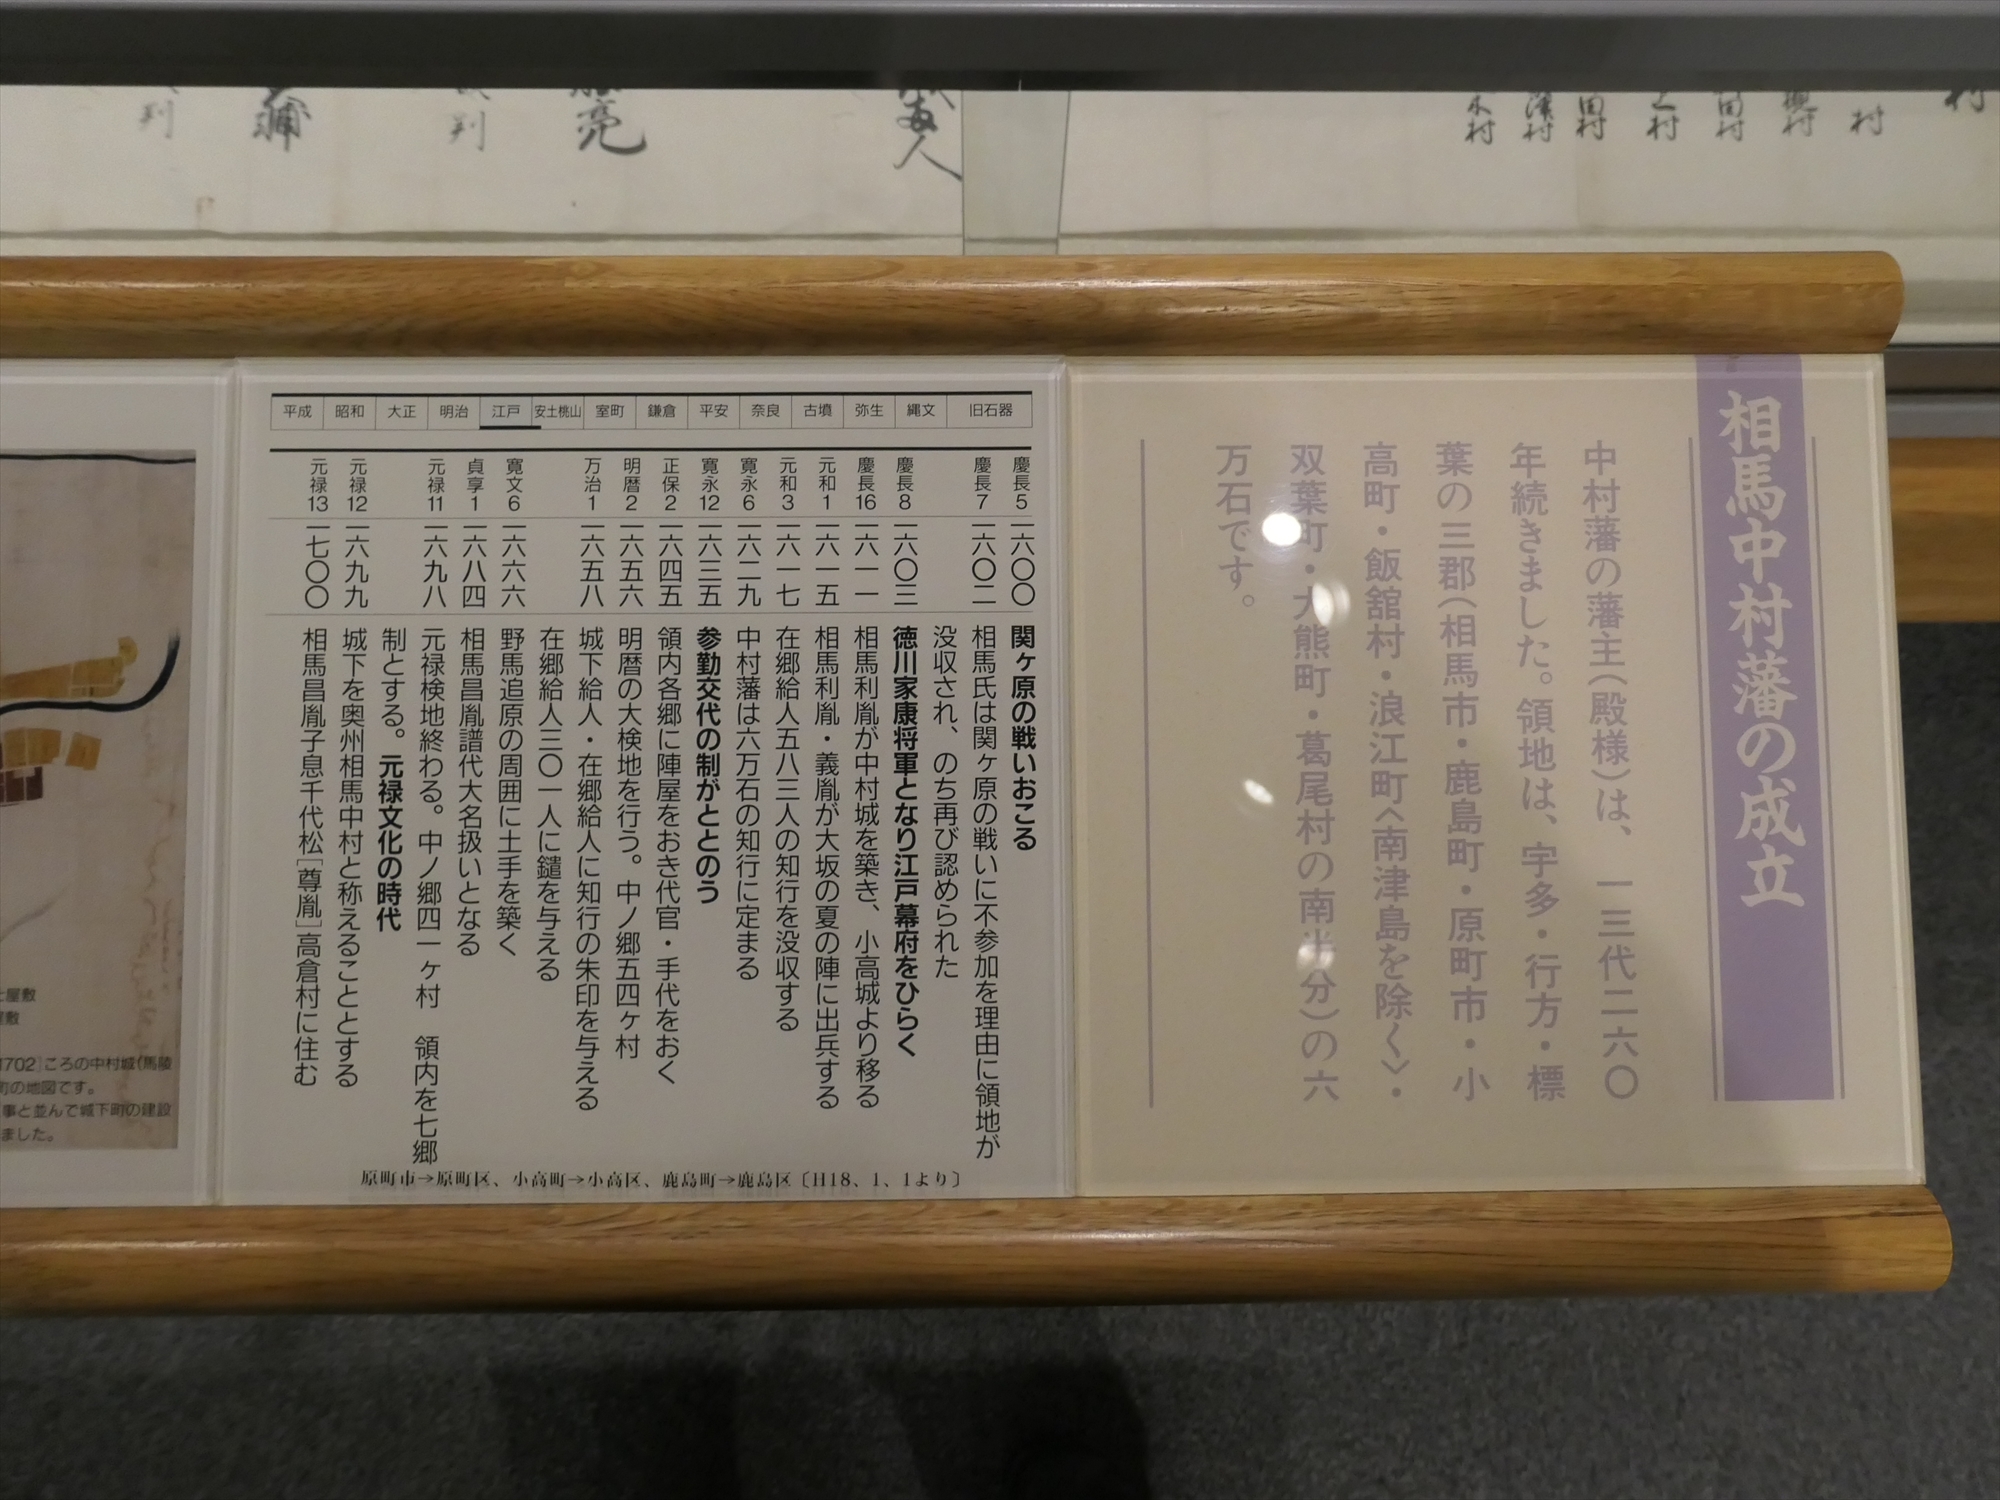 村
村
規村
田村
村
田村
澤村
木村
人
亮
判
浦
判
相馬中村藩の成立
中村藩の藩主(殿様)は、一三代二六〇
年続きました。領地は、宇多・行方・標
葉の三郡(相馬市・鹿島町・原町市・小
高町・飯舘村・浪江町〈南津島を除く〉・
双葉町・大熊町・葛尾村の南半分)の六
万石です。
旧石器 縄文 弥生 古墳 奈良 平安 鎌倉 室町 安土桃山 江戸 明治 大正 昭和 平成
慶長5 一六〇〇 関ヶ原の戦いおこる
慶長7 一六〇二 相馬氏は関ヶ原の戦いに不参加を理由に領地が
没収され、のち再び認められた
慶長8 一六〇三 徳川家康将軍となり江戸幕府をひらく
慶長16 一六一一 相馬利胤が中村城を築き、小高城より移る
元和1 一六一五 相馬利胤・義胤が大坂の夏の陣に出兵する
元和3 一六一七 在郷給人五八三人の知行を没収する
寛永6 一六二九 中村藩は六万石の知行に定まる
寛永12 一六三五 参勤交代の制がととのう
正保2 一六四五 領内各郷に陣屋をおき代官・手代をおく
明暦2 一六五六 明暦の大検地を行う。中ノ郷五四ヶ村
万治1 一六五八 城下給人・在郷給人に知行の朱印を与える
在郷給人三〇一人に鑓を与える
寛文6 一六六六 野馬追原の周囲に土手を築く
貞享1 一六八四 相馬昌胤譜代大名扱いとなる
元禄11 一六九八 元禄検地終わる。中ノ郷四一ヶ村　領内を七郷
制とする。元禄文化の時代
元禄12 一六九九 城下を奥州相馬中村と称えることとする
元禄13 一七〇〇 相馬昌胤子息千代松[尊胤]高倉村に住む
原町市→原町区、小高町→小高区、鹿島町→鹿島区〔H18、1、1より〕
屋敷
屋敷
1702]ころの中村城(馬陵
町の地図です。
事と並んで城下町の建設
ました。